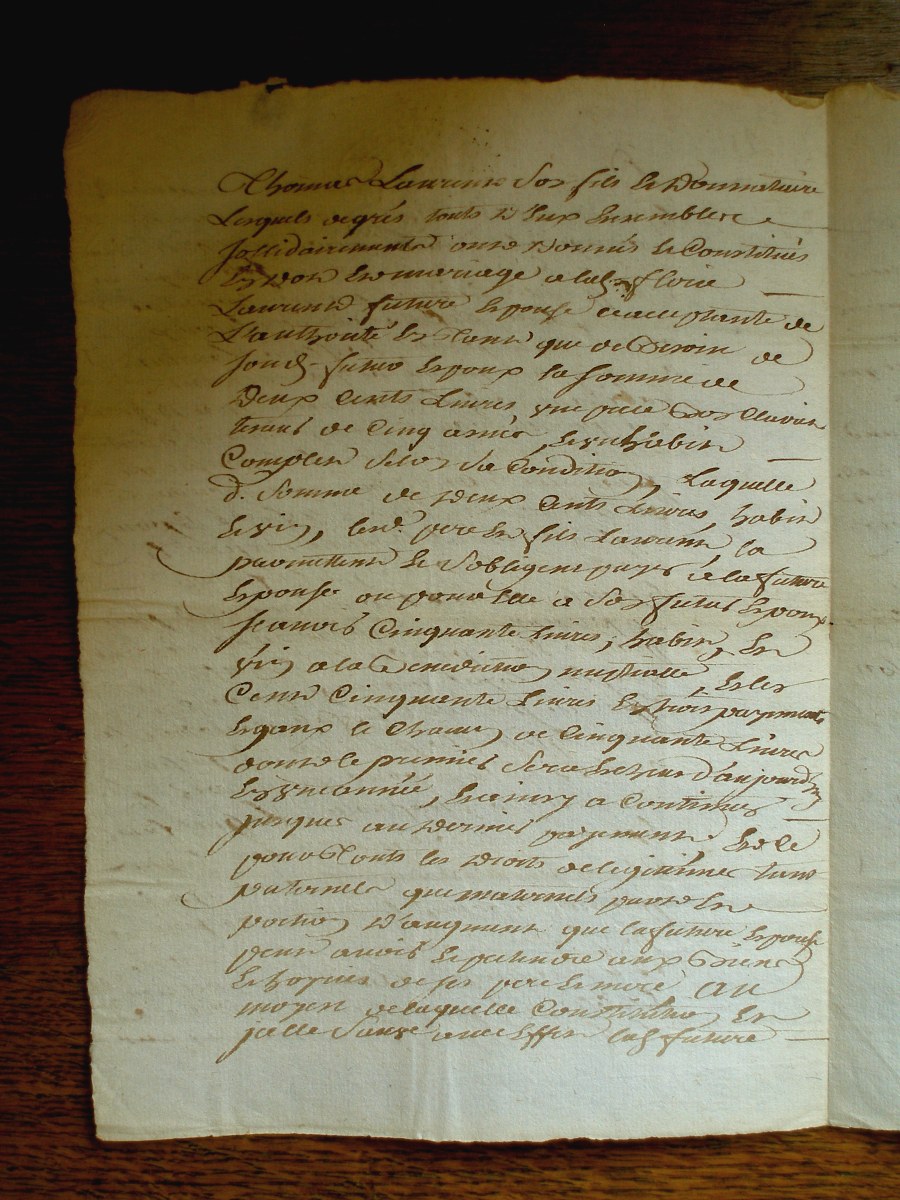 Thomas Laurens son fils et Donnataire
Lesquels de grés touts d'Eux Ensemble et
sollidairement ont Donnés et Constitués
En Dot En mariage a lad. floire
Laurens future Epouse acceptante de
L'authorité En Tant que de Besoin de
sond. futur Epoux la somme de
Deux Cents Livres, une
tenant de Cinq années, et un habit
Complet selon sa Condition, Laquelle
d. somme de Deux Cents Livres, habit
Lesd. pere et fils Laurens, la
promettent et s'obligent payer a la future
Epouse ou pour Elle a son futur Epoux
scavoir Cinquante Livres, habit, et
a la Benediction nuptialle, et les
Cent Cinquante Livres En trois payements
Egaux et Chacun de Cinquante Livres
dont le premier sera Echeu d'aujourd'huy
En une année, Et ainsy a Continuer
jusques au Dernier payement Et le
pour Touts les Droits de legitime tant
paternels que maternels part et
portion D'augment que la future Epouse
peut avoir et pretendre aux Biens
Et hoyries de ses pere et mere Au
moyen de laquelle Constitution Et
jcelle sauve avec Effet lad. future